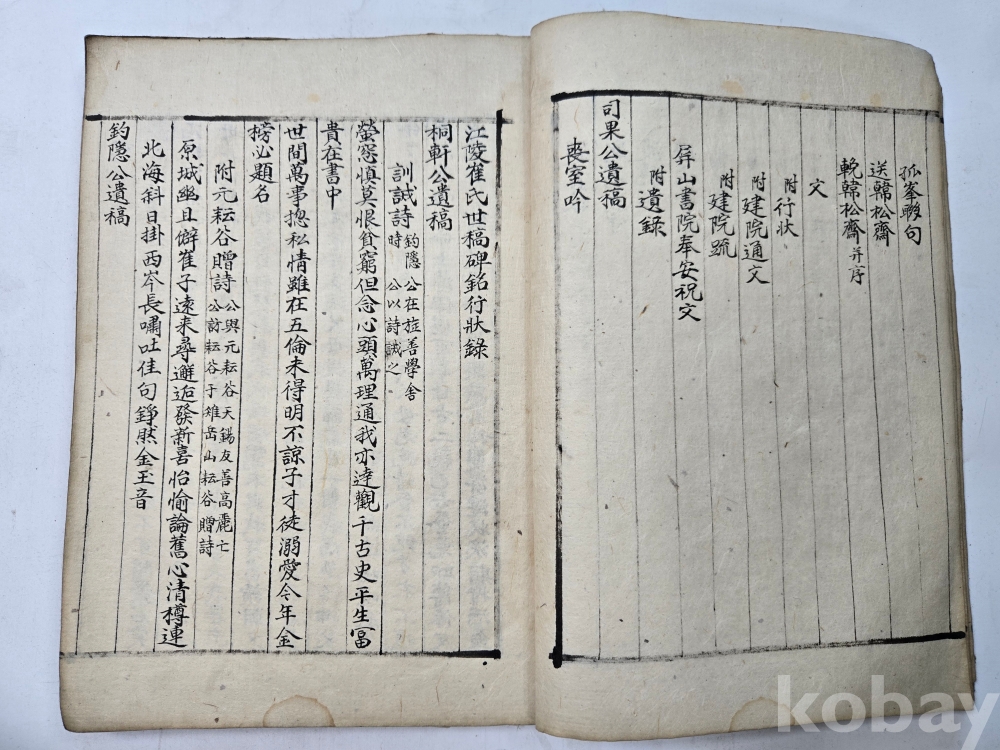 孤峯聯句
送韓松齋
輓韓松齋并序
文
附行狀
附建院通文
附建院䟽
屛山書院奉安祝文
附遺録
司果公遺稿
喪室吟
江陵崔氏世稿碑銘行狀錄
桐軒公遺稿
訓誡詩 釣隱公在旌善學舍時公以詩誡之
螢窓愼莫恨貧窮但念心頭萬理通我亦達觀千古史平生冨
貴在書中
世間萬事揔私情雖在五倫未得明不諒子才徒溺愛今年金
榜必題名
附元耘谷贈詩 公與元耘谷天錫友善高麗亡公訪耘谷于雉岳山耘谷贈詩
原城幽且僻崔子遠來尋邂逅發新喜怡愉論舊心清樽連
北海斜日掛西岑長嘯吐佳句錚然金玉音
釣隱公遺稿
kobay